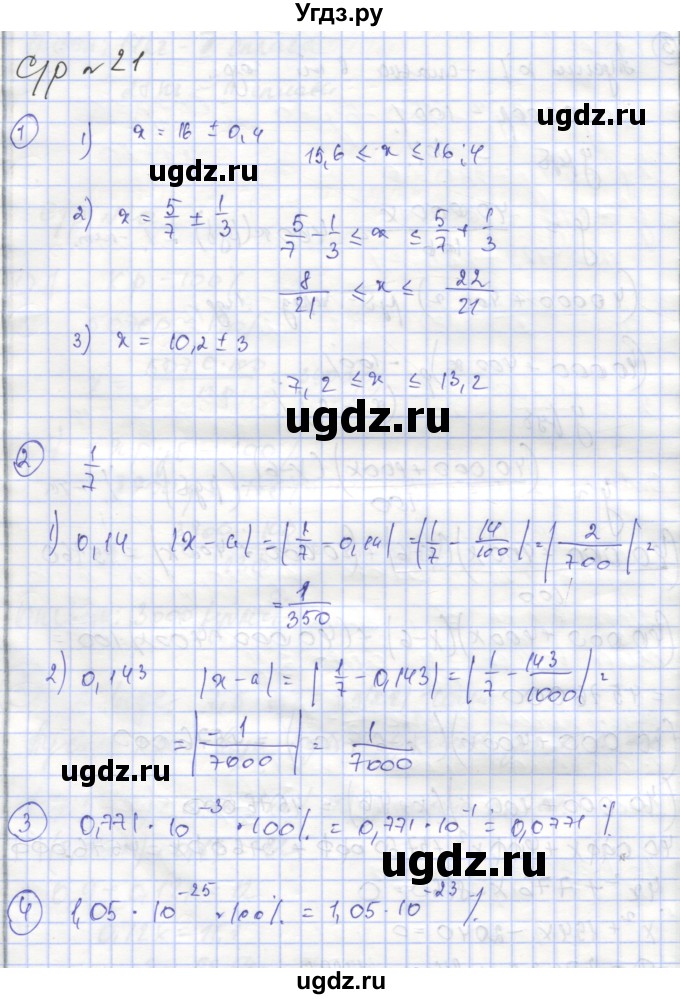 Угдз.ру
С/р № 21
① 1) x = 16 ± 0,4
15,6 ≤ x ≤ 16,4
ugdz.ru
2) x = 5/7 ± 1/3
5/7 - 1/3 ≤ x ≤ 5/7 + 1/3
8/21 ≤ x ≤ 22/21
3) x = 10,2 ± 3
7,2 ≤ x ≤ 13,2
ugdz.ru
② 1/7
ugdz.ru
1) 0,14 |x - a| = |1/7 - 0,14| = |1/7 - 14/100| = |2/700| =
= 1/350
2) 0,143 |x - a| = |1/7 - 0,143| = |1/7 - 143/1000| =
= |-1/7000| = 1/7000
ugdz.ru
③ 0,771 · 10⁻³ · 100% = 0,771 · 10⁻¹ = 0,0771 %
ugdz.ru
④ 1,05 · 10⁻²⁵ · 100% = 1,05 · 10⁻²³ %
ugdz.ru
ugdz.ru